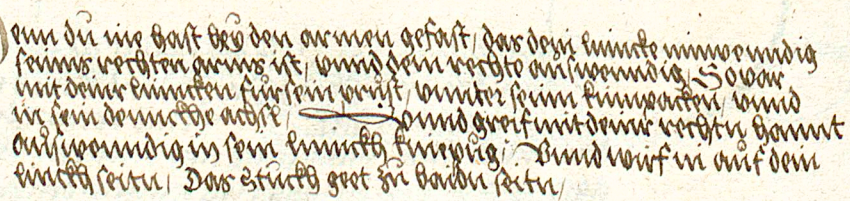 enn dů ine hast beÿ den armen gefast, das dein linncke innwenndig
seinns rechten arms ist, vnnd dein rechte auswenndig, So var
mit deinr linncken für sein prust, vnnter seinn kinnpacken, vnnd
in sein dennckhe achsl, vnnd greif mit deinr rechtn hannt
außwenndig in sein linnckh kniepüg, Vnnd wirf in auf dein
linckh seitn, Das Stuckh geet zů baidn seitn,